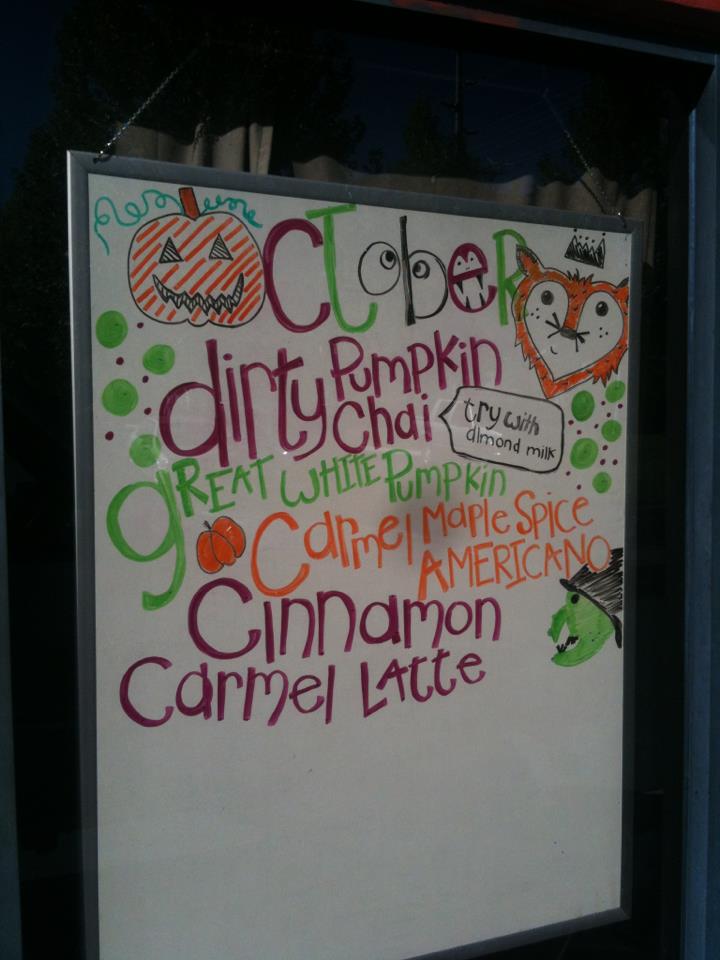 OCTOBER
dirty Pumpkin Chai
try with
almond milk
gREAT WHITE Pumpkin
Carmel Maple Spice
AMERICANO
Cinnamon
Carmel Latte